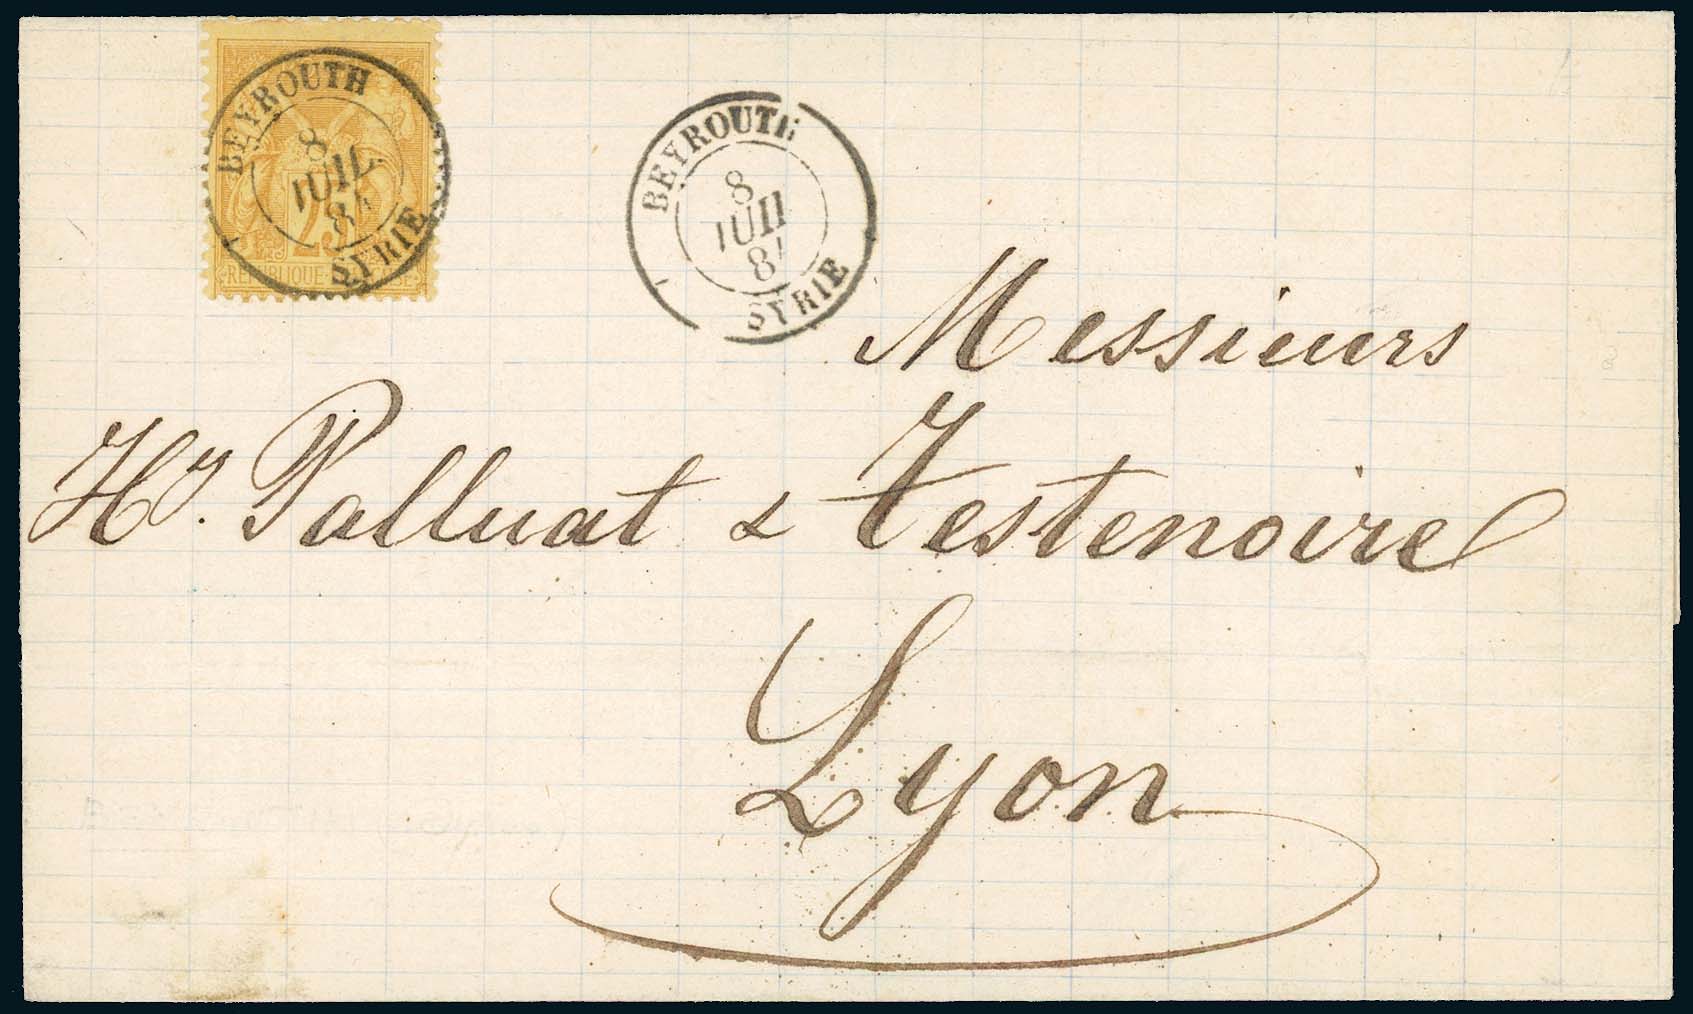 BEYROUTH
8
JUIL
8
SYRIE
25
REPUBLIQUE
BEYROUTH
8
JUIL
8
SYRIE
Messieurs
Hy. Palluat & Testenoire
Lyon